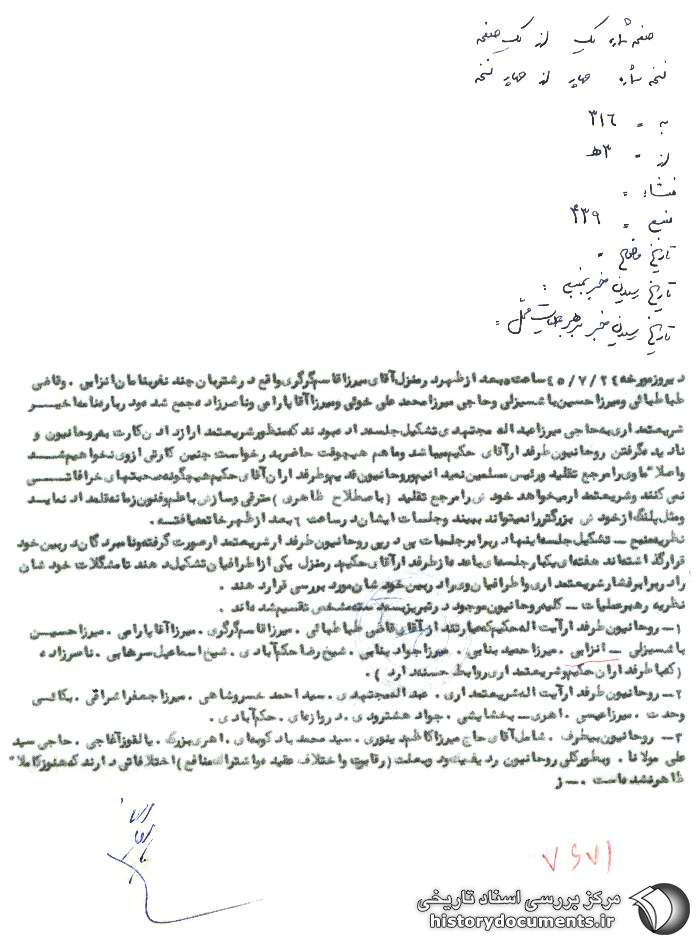 صفحه شماره یک از یک صفحه
نسخه شماره چهار از چهار نسخه
به = ۳۱۶
از = ۳ه
منشاء =
منبع = ۴۳۹
تاریخ وقوع =
تاریخ رسیدن خبر بمنبع =
تاریخ رسیدن خبر برهبر عملیات محل =
دیروز مورخه ۴۵/۷/۲۴ ساعت ۵ بعد از ظهر در منزل آقای میرزا قاسم گرگری واقع در شتربان چند نفر بنامان انزابی . وقاضی
طباطبائی ومیرزا حسین باشسیزلی وحاجی میرزا محمد علی خوئی ومیرزا آقا یارامی وناصرزاده مجمع شده بود درباره نامه اخیر
شریعتمداری به حاجی میرزا عبداله مجتهدی تشکیل جلسه داده بودند که منظور شریعتمدار از دادن کارت به روحانیون و
نادیده گرفتن روحانیون طرفدار آقای حکیم میباشد وما هم هیچوقت حاضر بدرخواست چنین کارتی ازوی نخواهیم شد
واصلا" ما وی را مرجع تقلید ورئیس مسلمین نمیدانیم وروحانیون قدیم وطرفداران آقای حکیم هیچگونه صحبتهای خرافاتی
نمی کنند وشریعتمدار میخواهد خودش را مرجع تقلید (باصطلاح ظاهری) مترقی وسازش با علم وفنون زمانه قلمداد نماید
ومثل پلنگ از خودش بزرگتر را نمیتواند ببیند وجلسات ایشان در ساعت ۶ بعد از ظهر خاتمه یافته .
نظریه منبع — تشکیل جلسه اینها در برابر جلسات پی در پی روحانیون طرفدار شریعتمدار صورت گرفته ونامبردگان در بین خود
قرار گذاشته اند هفته ای یکبار جلسه ای با عده از طرفدار آقای حکیم در منزل یکی از اطرافیان تشکیل دهند تا مشکلات خودشان
را در برابر فشار شریعتمداری واطرافیان وی را در بین خودشان مورد بررسی قرار دهند .
نظریه رهبر عملیات — کلیه روحانیون موجود در تبریز بسه دسته مشخص تقسیم شده اند .
۱— روحانیون طرفدار آیت اله حکیم که عبارتند از آقای قاضی طباطبائی . میرزا قاسم گرگری . میرزا آقا یارامی . میرزا حسین
باشسیزلی — انزابی . میرزا حمید بنابی . میرزا جواد بنابی . شیخ رضا حکم آبادی . شیخ اسماعیل سرهابی . ناصرزاده
(که با طرفداران حکیم وشریعتمداری روابط حسنه دارد) .
۲— روحانیون طرفدار آیت اله شریعتمداری . عبداله مجتهدی . سید احمد خسروشاهی . میرزا جعفر اشراقی . بکائی
وحدت . میرزا عیسی . اهری — بخشایشی . جواد هشترودی . دروازه ای . حکم آبادی .
۳— روحانیون بیطرف . شامل آقای حاج میرزا کاظم دینوری . سید محمد بادکوبه ای . اهری بزرگ . یالقوز آغاجی . حاجی سید
علی مولانا . وبطور کلی روحانیون ردیف یک ودو بعلت (رقابت واختلاف عقیده واشتراک منافع) اختلافاتی دارند که هنوز کاملا"
ظاهر نشده است . — ز
۷۶۷۱
مرکز بررسی اسناد تاریخی
historydocuments.ir